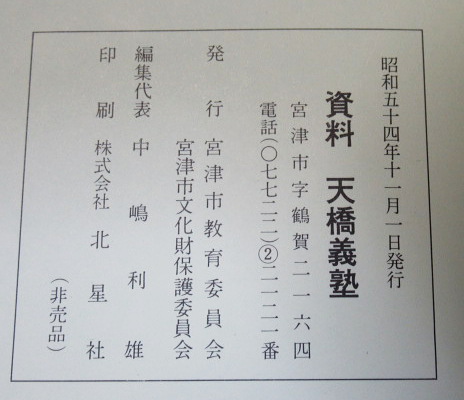 昭和五十四年十一月一日発行
資料　天橋義塾
宮津市字鶴賀二一六四
電話(〇七七二二)②二一二一番
発行　宮津市教育委員会
宮津市文化財保護委員会
編集代表　中嶋利雄
印刷　株式会社　北星社
(非売品)